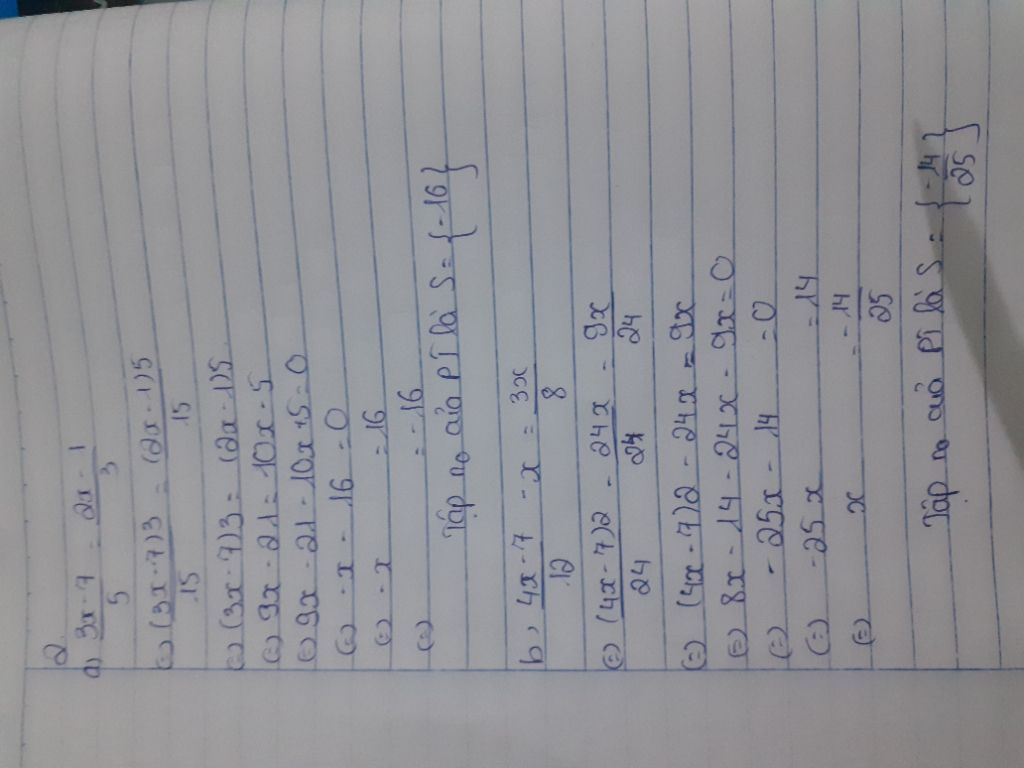 2.
a) 3x-7/5 = 2x-1/3
(=) (3x-7)3/15 = (2x-1)5/15
(=) (3x-7)3 = (2x-1)5
(=) 9x-21 = 10x-5
(=) 9x-21-10x+5=0
(=) -x-16=0
(=) -x = 16
(=) = -16
Tập no của PT là S = {-16}
b) 4x-7/12 - x = 3x/8
(=) (4x-7)2/24 - 24x/24 = 9x/24
(=) (4x-7)2 - 24x = 9x
(=) 8x-14-24x-9x=0
(=) -25x-14 =0
(=) -25x =14
(=) x = -14/25
Tập no của PT là S = {-14/25}